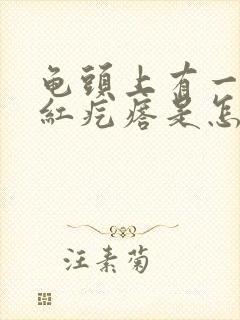 龟頭上有一
紅疙瘩是怎
汪素菊